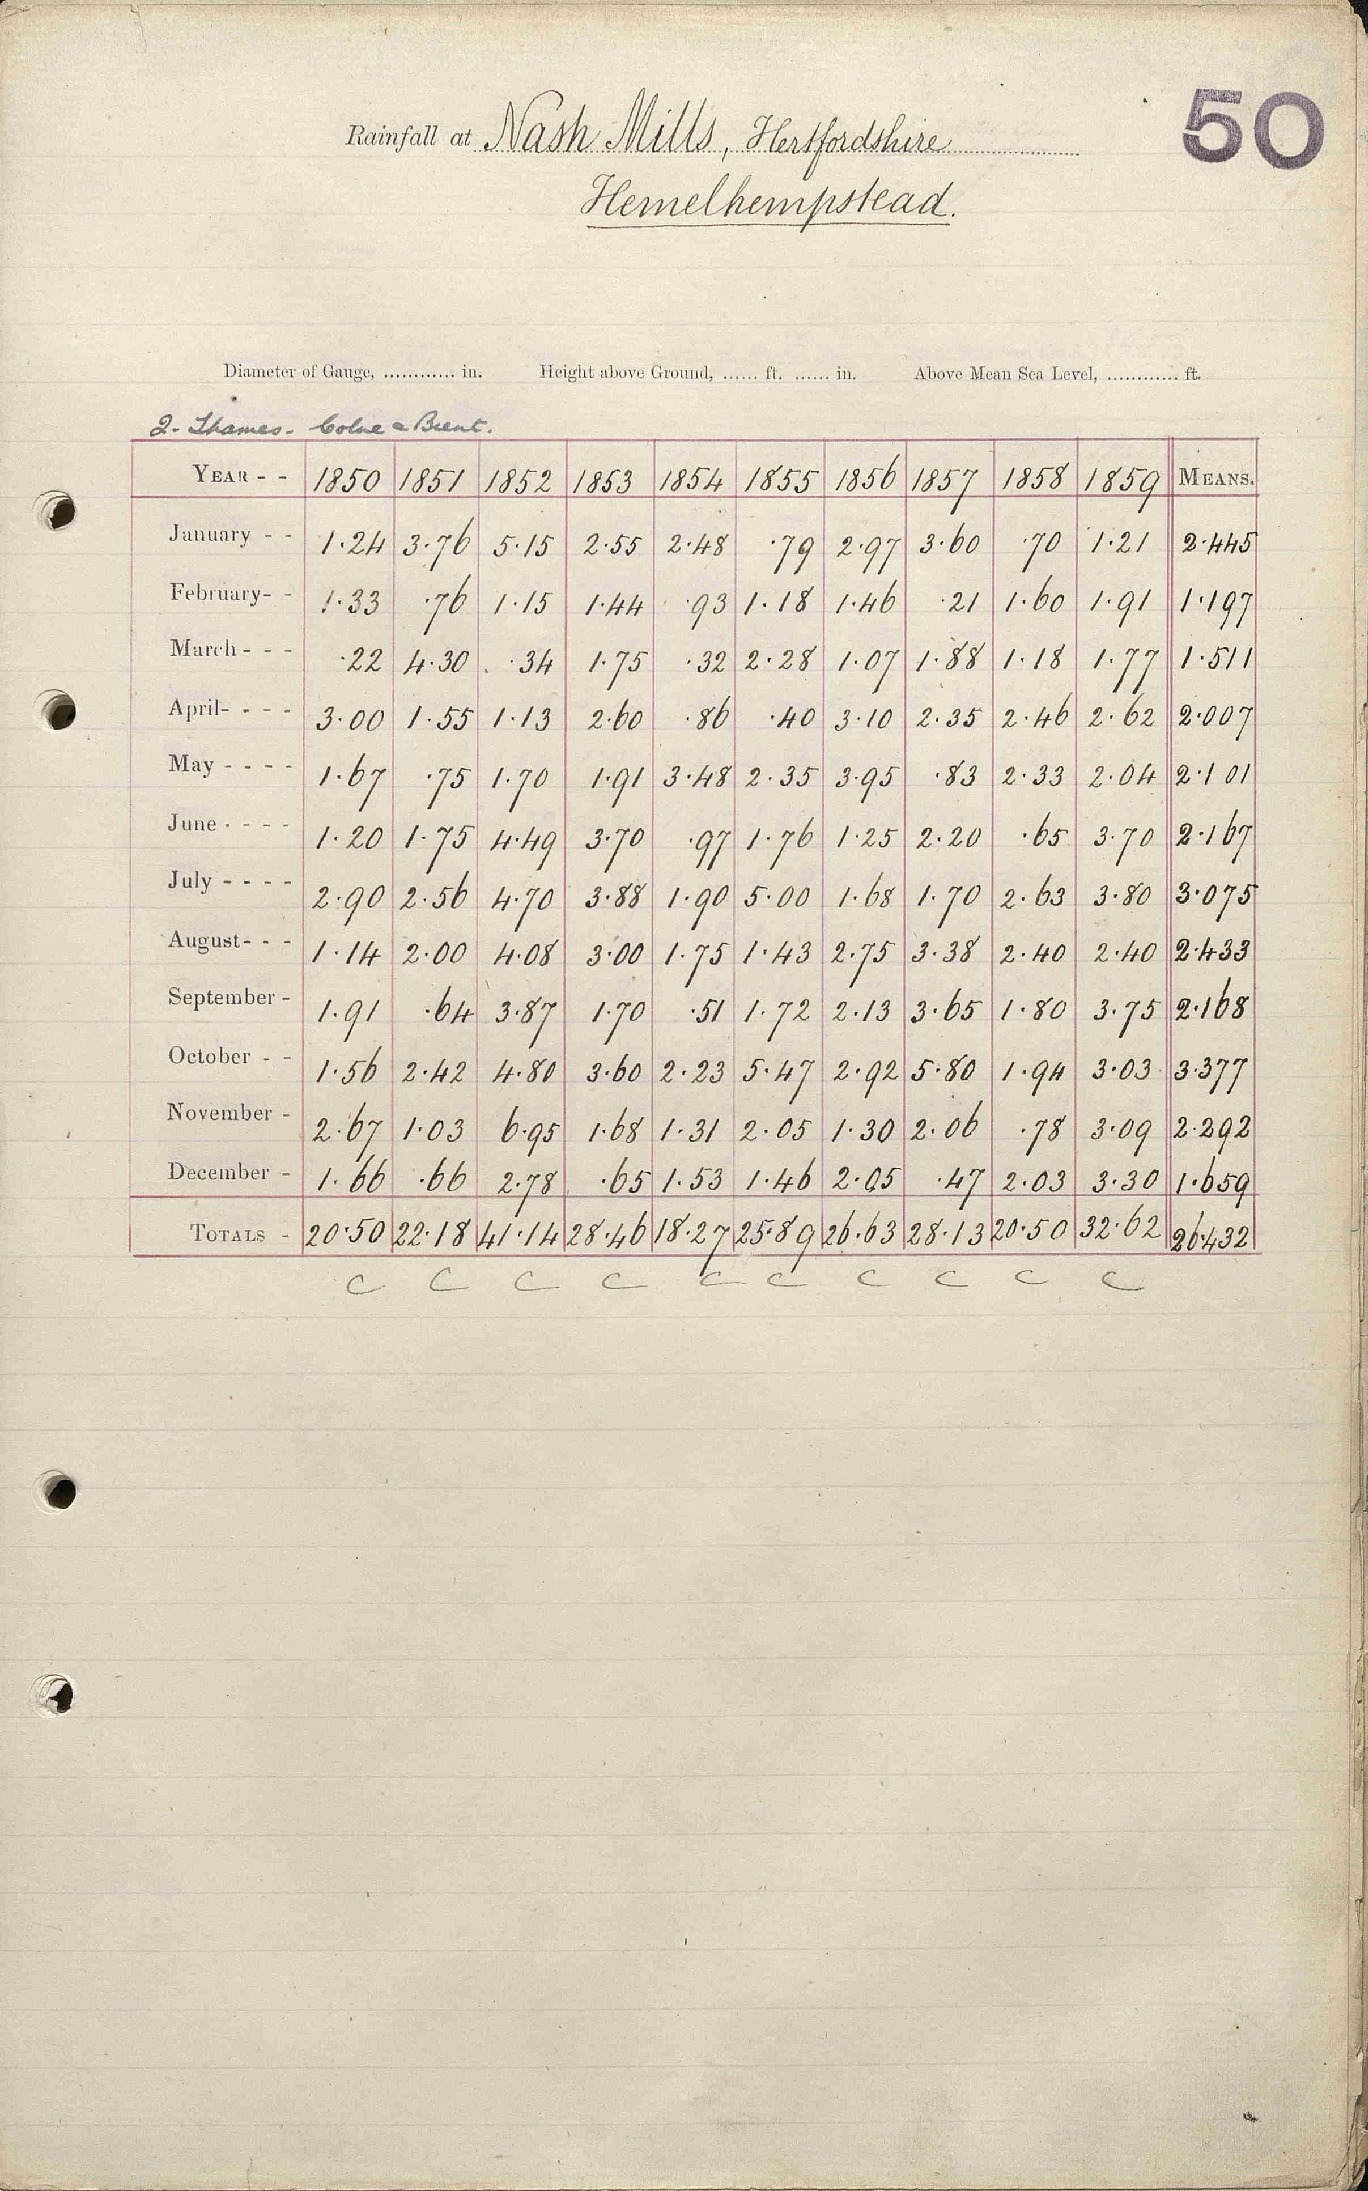 50
Rainfall at Nash Mills, Hertfordshire
Hemelhempstead.
Diameter of Gauge, ............ in. Height above Ground, ...... ft. ...... in. Above Mean Sea Level, ............ ft.
2. Thames. Colne & Brent.
YEAR - - 1850 1851 1852 1853 1854 1855 1856 1857 1858 1859 MEANS.
January - - 1.24 3.76 5.15 2.55 2.48 .79 2.97 3.60 .70 1.21 2.445
February- - 1.33 .76 1.15 1.44 .93 1.18 1.46 .21 1.60 1.91 1.197
March - - - .22 4.30 .34 1.75 .32 2.28 1.07 1.88 1.18 1.77 1.511
April- - - - 3.00 1.55 1.13 2.60 .86 .40 3.10 2.35 2.46 2.62 2.007
May - - - - 1.67 .75 1.70 1.91 3.48 2.35 3.95 .83 2.33 2.04 2.101
June - - - - 1.20 1.75 4.49 3.70 .97 1.76 1.25 2.20 .65 3.70 2.167
July - - - - 2.90 2.56 4.70 3.88 1.90 5.00 1.68 1.70 2.63 3.80 3.075
August- - - 1.14 2.00 4.08 3.00 1.75 1.43 2.75 3.38 2.40 2.40 2.433
September - 1.91 .64 3.87 1.70 .51 1.72 2.13 3.65 1.80 3.75 2.168
October - - 1.56 2.42 4.80 3.60 2.23 5.47 2.92 5.80 1.94 3.03 3.377
November - 2.67 1.03 6.95 1.68 1.31 2.05 1.30 2.06 .78 3.09 2.292
December - 1.66 .66 2.78 .65 1.53 1.46 2.05 .47 2.03 3.30 1.659
TOTALS - 20.50 22.18 41.14 28.46 18.27 25.89 26.63 28.13 20.50 32.62 26.432
C C C C C C C C C C